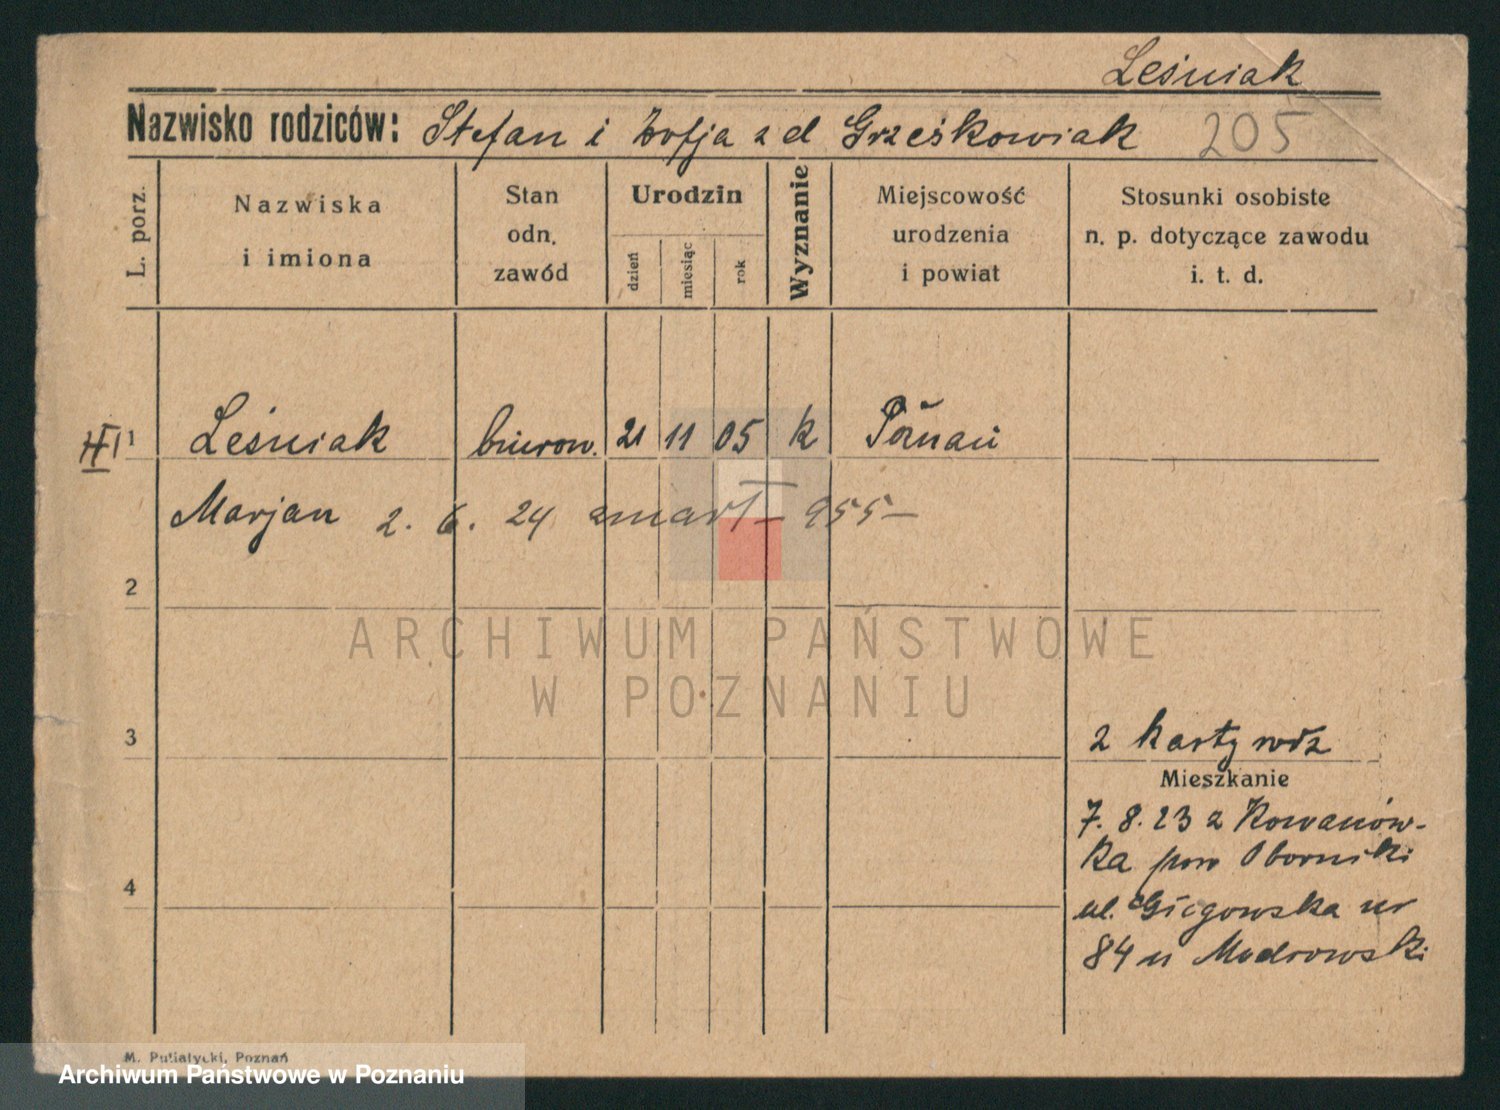 Leśniak
Nazwisko rodziców: Stefan i Zofja z d Grześkowiak 205
L. porz.
Nazwiska
i imiona
Stan
odn.
zawód
Urodzin
dzień
miesiąc
rok
Wyznanie
Miejscowość
urodzenia
i powiat
Stosunki osobiste
n. p. dotyczące zawodu
i. t. d.
1 Leśniak biurow. 21 11 05 k Poznań
Marjan 2. 6. 24 zmarł – 955 –
2
ARCHIWUM PAŃSTWOWE
W POZNANIU
3
2 karty rodz
Mieszkanie
7. 8. 23 z Kowanów-
ka pow Oborniki
4
ul. Głogowska nr
84 u Modrowski
M. Putiatycki, Poznań
Archiwum Państwowe w Poznaniu